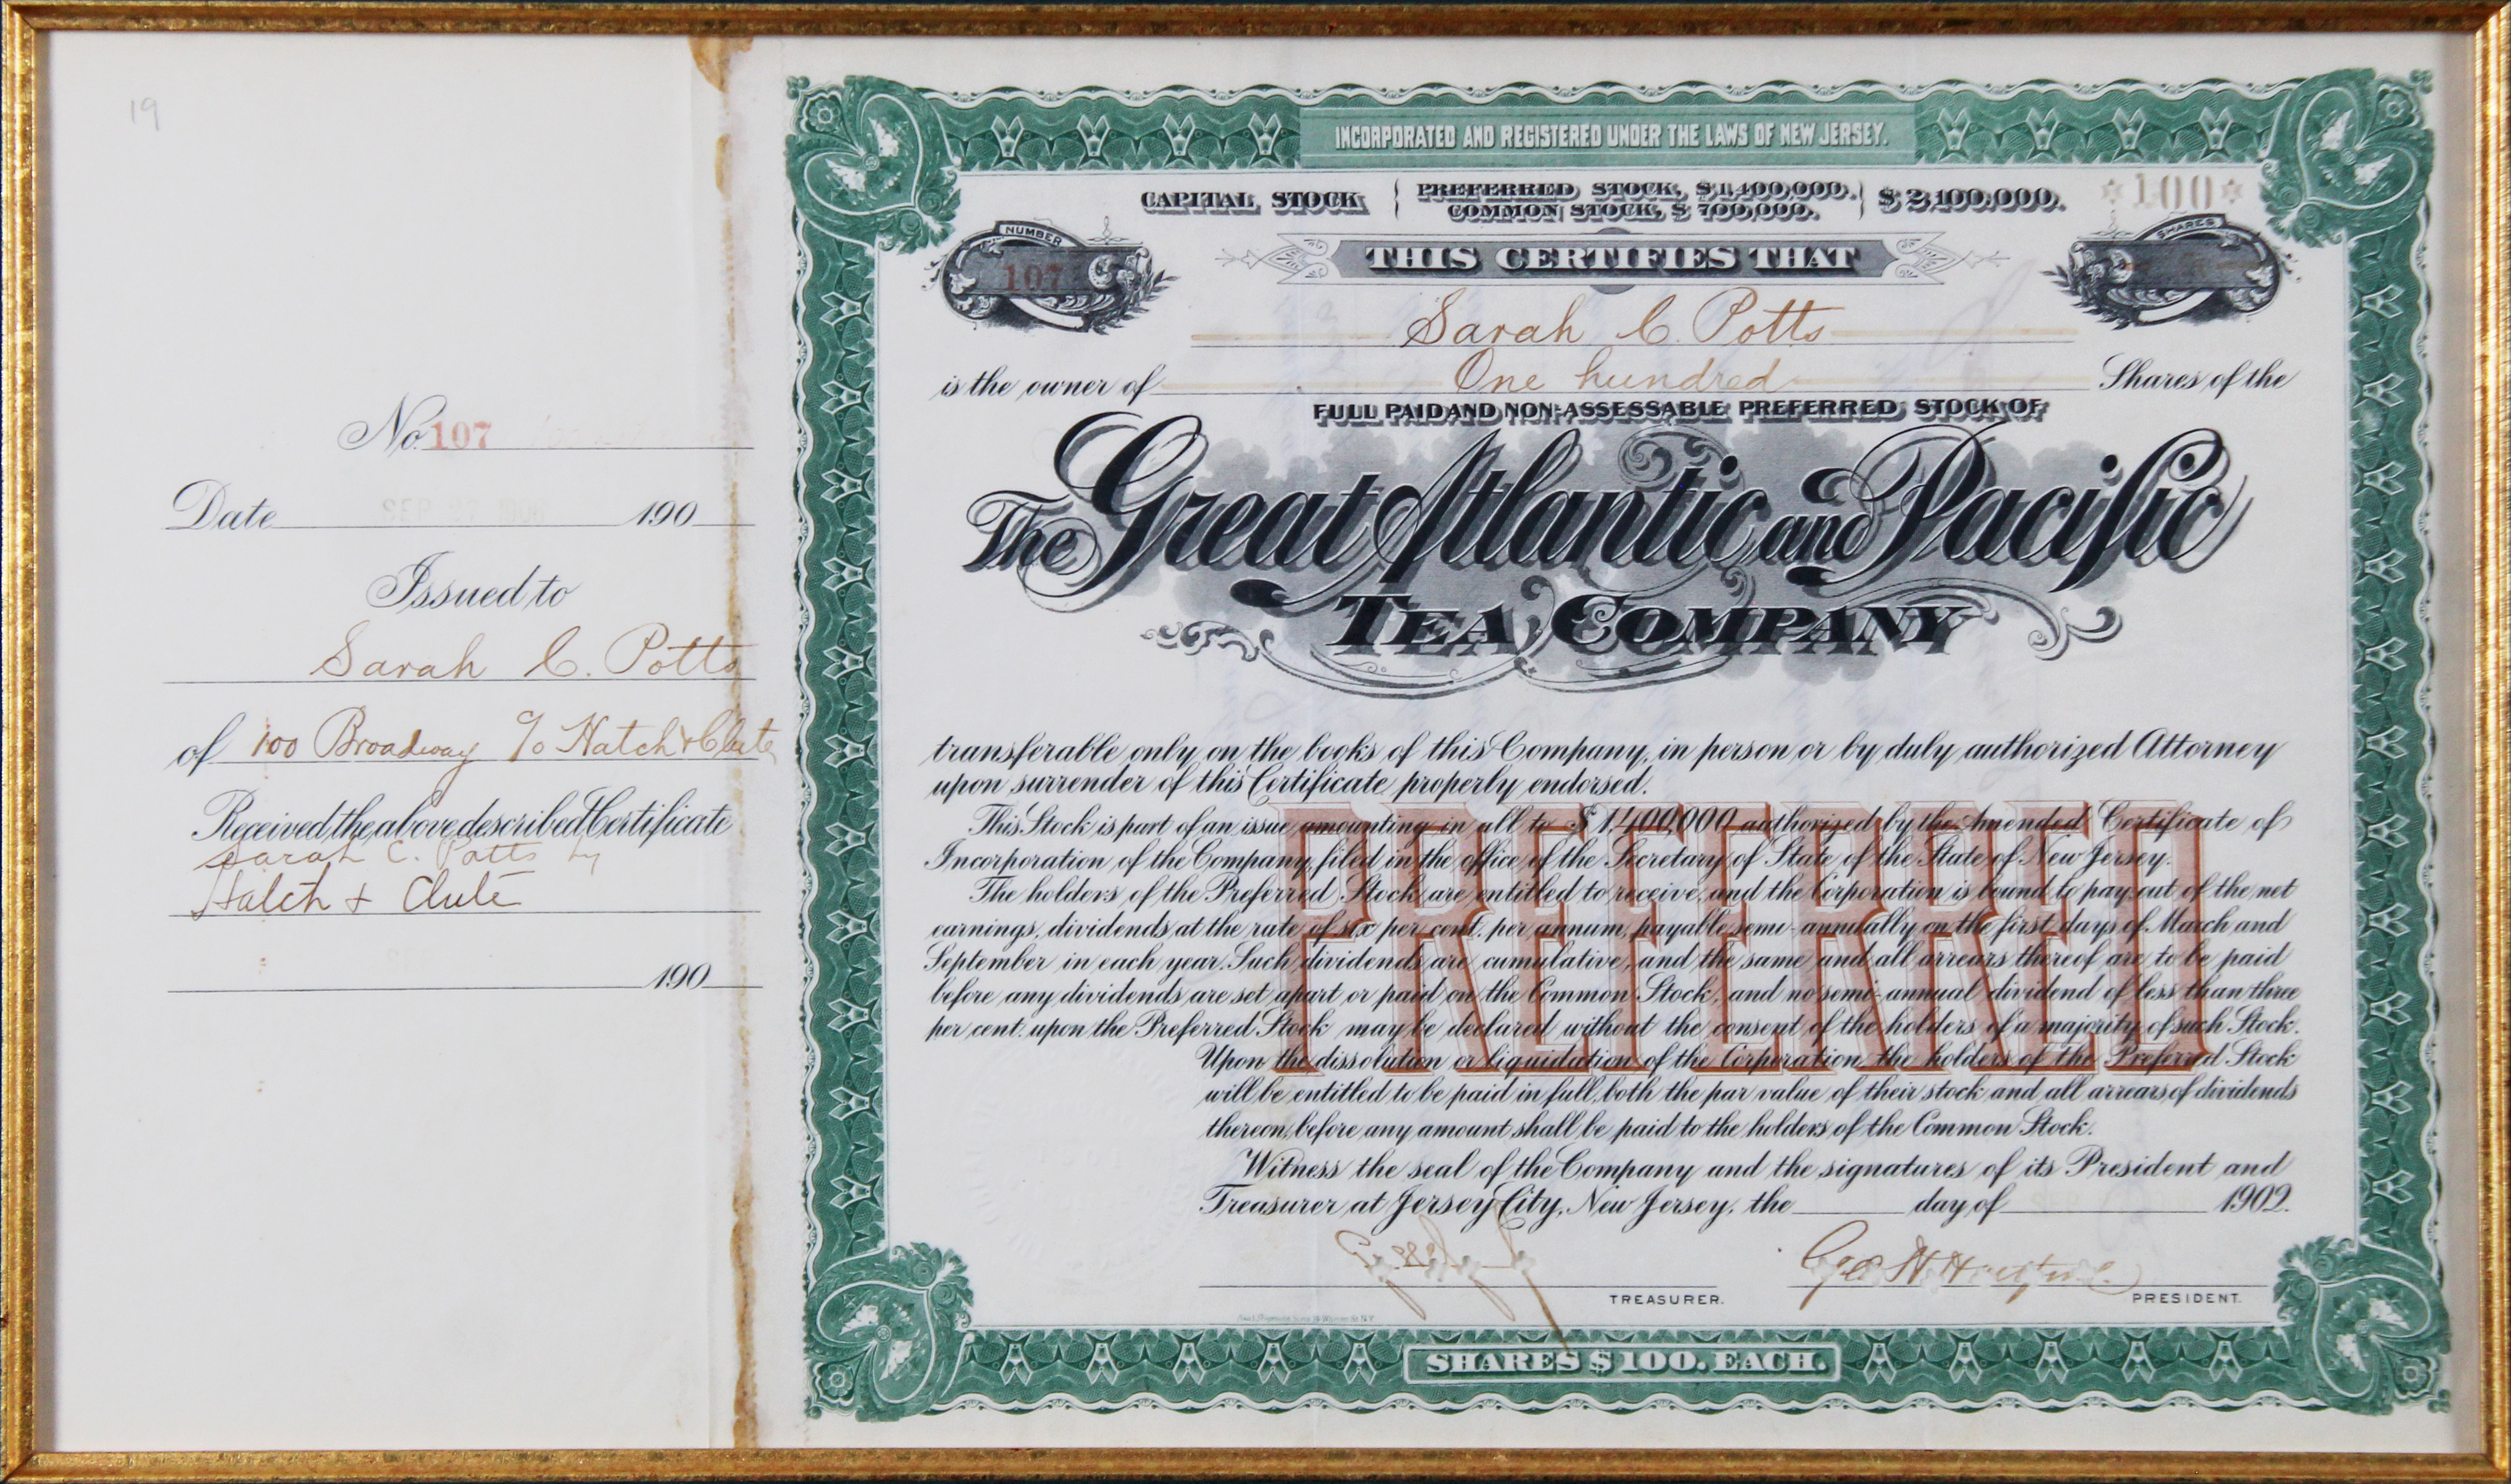 19
No. 107
Date SEP 27 1906 190
Issued to
Sarah C. Potts
of 100 Broadway c/o Hatch & Clute
Received the above described Certificate
Sarah C. Potts by
Hatch & Clute
190
INCORPORATED AND REGISTERED UNDER THE LAWS OF NEW JERSEY.
CAPITAL STOCK { PREFERRED STOCK, $1,400,000. } $2,100,000.
COMMON STOCK, $ 700,000.
*100*
NUMBER
107
SHARES
THIS CERTIFIES THAT
Sarah C. Potts
is the owner of One hundred Shares of the
FULL PAID AND NON-ASSESSABLE PREFERRED STOCK OF
The Great Atlantic and Pacific
TEA COMPANY
transferable only on the books of this Company, in person or by duly authorized Attorney
upon surrender of this Certificate properly endorsed.
This Stock is part of an issue amounting in all to $1,400,000 authorized by the Amended Certificate of
Incorporation of the Company, filed in the office of the Secretary of State of the State of New Jersey.
The holders of the Preferred Stock are entitled to receive, and the Corporation is bound to pay out of the net
earnings, dividends at the rate of six per cent. per annum, payable semi-annually on the first days of March and
September in each year. Such dividends are cumulative, and the same and all arrears thereof are to be paid
before any dividends are set apart or paid on the Common Stock, and no semi-annual dividend of less than three
per cent. upon the Preferred Stock may be declared without the consent of the holders of a majority of such Stock.
Upon the dissolution or liquidation of the Corporation, the holders of the Preferred Stock
will be entitled to be paid in full, both the par value of their stock and all arrears of dividends
thereon, before any amount shall be paid to the holders of the Common Stock.
PREFERRED
Witness the seal of the Company and the signatures of its President and
Treasurer at Jersey City, New Jersey, the day of 1902.
Geo H Hartford
TREASURER.
PRESIDENT.
SHARES $100. EACH.